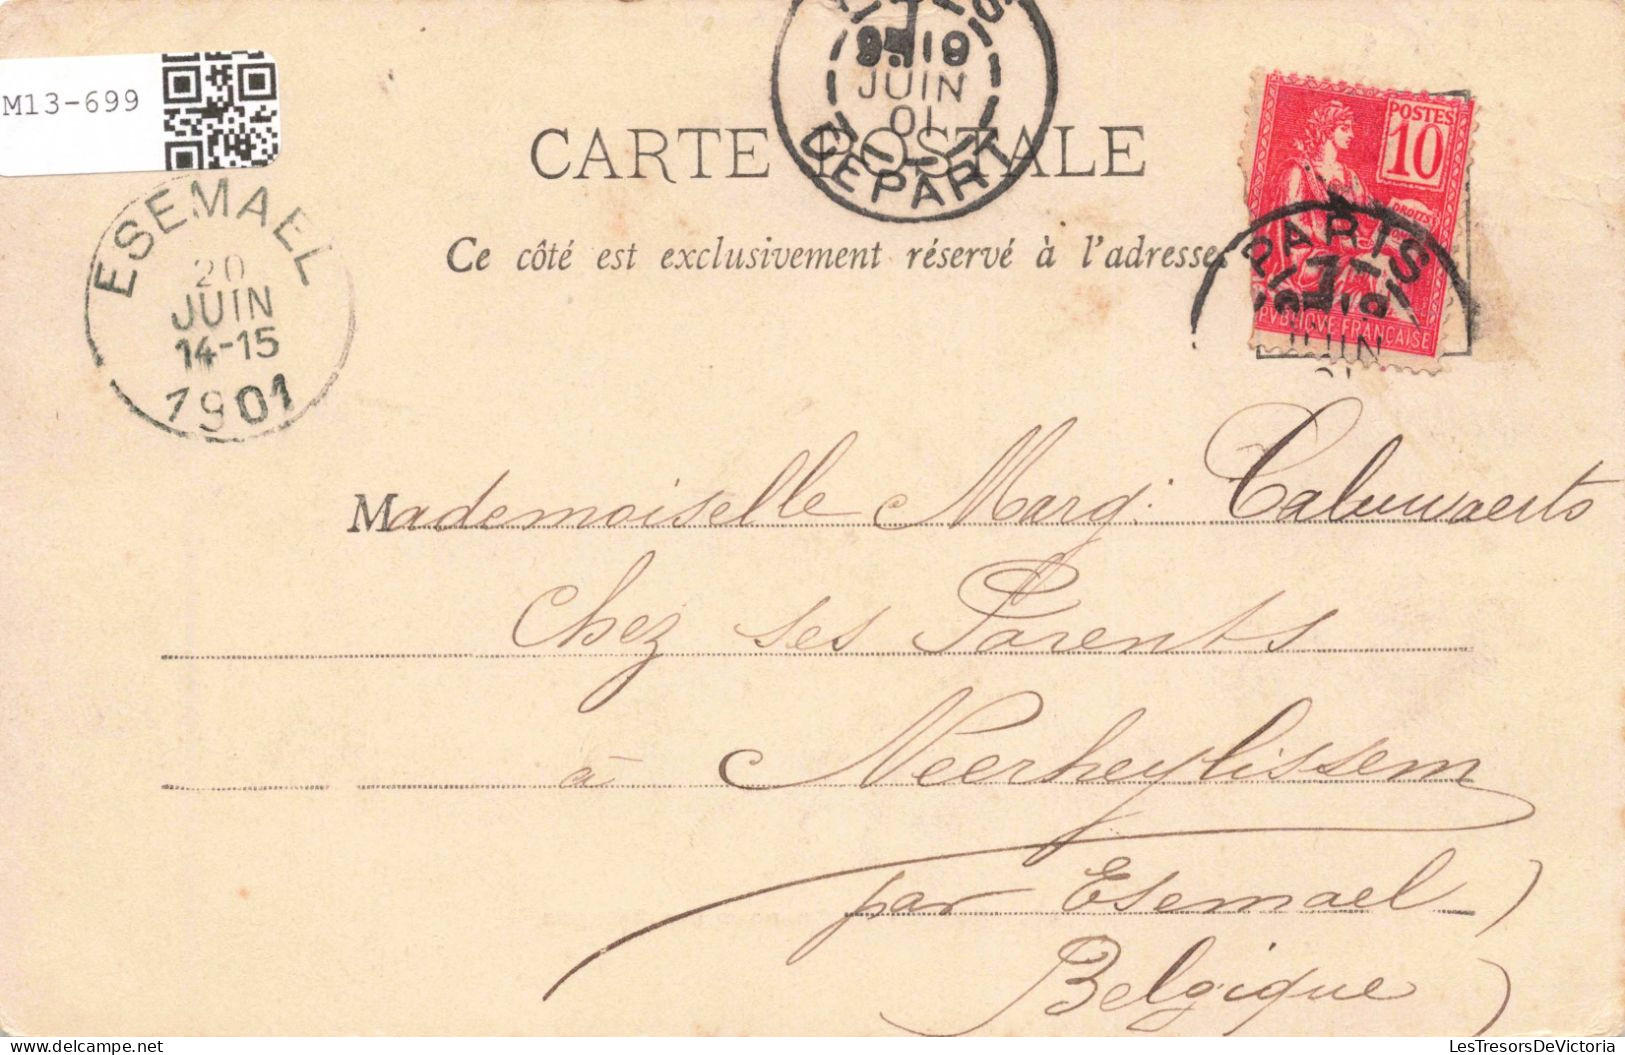 M13-699
JUIN
01
DEPART
CARTE POSTALE
POSTES
10
ESEMAEL
20
JUIN
14-15
1901
Ce côté est exclusivement réservé à l'adresse
PARIS
JUIN
Mademoiselle Marg: Caluwaerts
Chez ses Parents
à Neerheylissem
par Esemael
Belgique
LesTresorsDeVictoria www.delcampe.net